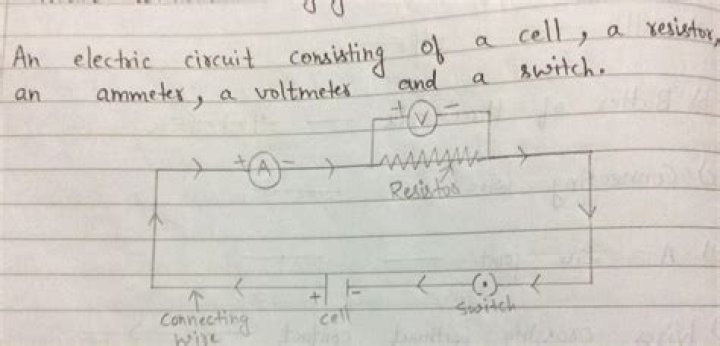 An electric circuit consisting of a cell, a resistor,
an ammeter, a voltmeter and a switch.
+ V -
+ A -
Resistor
+ -
Connecting cell switch
wire